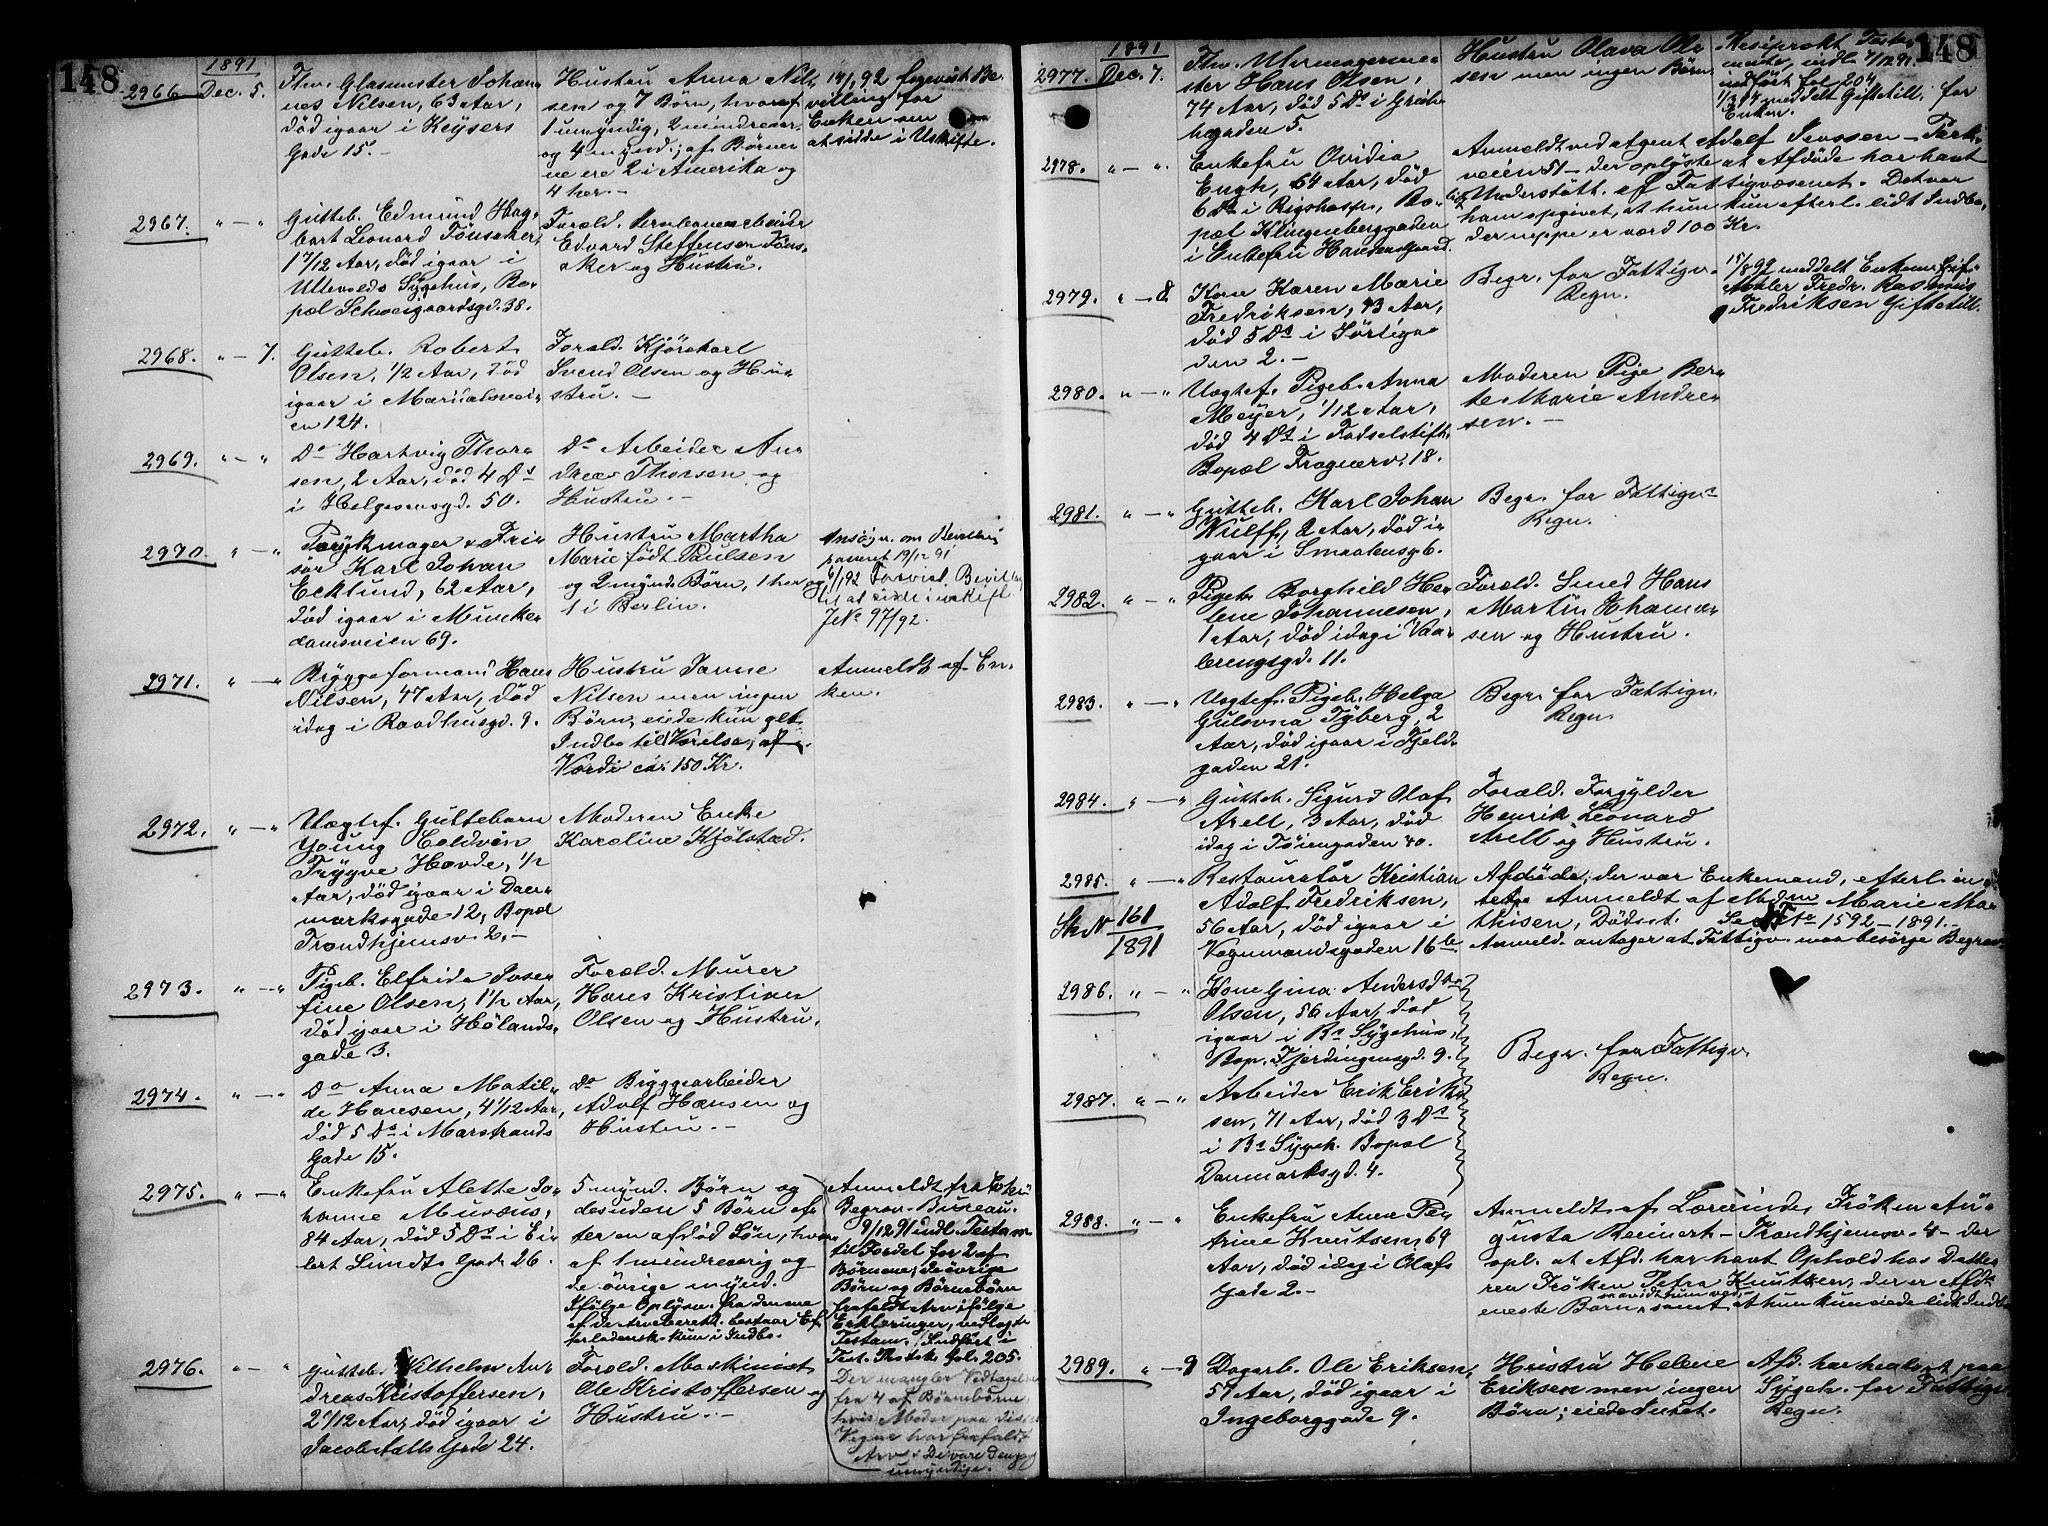 148
1891
2966 Dec. 5. Fhv. Glasmester Johan-
nes Nilsen, 63 Aar,
død igaar i Keysers
Gade 15.-
Hustru Anna Nil-
sen og 7 Børn, hvoraf
1 umyndig, 2 mindreaar.
og 4 mynd.; af Børne-
ne ere 2 i Amerika og
4 her.-
14/1 92 forevist Be-
villing for
Enken om
at sidde i Uskifte.
2967. " - " Gutteb. Edmund Hag-
bart Leonard Tønsaker,
1 7/12 Aar, død igaar i
Ullevolds Sygehus, Bo-
pæl Schweigaardsgd. 38.
Foræld. Jernbanearbeider
Edvard Steffensen Tøns-
aker og Hustru.
2968. " - 7. Gutteb. Robert
Olsen, 1/2 Aar, død
igaar i Maridalsvei-
en 124.
Foræld. Kjørekarl
Svend Olsen og Hu-
stru. -
2969. " - " Do Hartvig Thor-
sen, 2 Aar, død 4 Ds
i Helgesensgd. 50.
Do Arbeider An-
dreas Thorsen og
Hustru. -
2970. " - " Parykmager & Fri-
sør Karl Johan
Ecklund, 62 Aar,
død igaar i Munke-
damsveien 69.
Hustru Martha
Marie født Paulsen
og 2 mynd. Børn, 1 her og
1 i Berlin.
Ansøgn. om Bevilling
passeret 19/12 91
6/1 92 Forevist Bevilling
til at sidde i uskifte
J No 97/92.
2971. " - " Byggeformand Hans
Nilsen, 47 Aar, død
idag i Raadhusgd. 9.
Hustru Janne
Nilsen men ingen
Børn; eiede kun glt.
Indbo til 1 Værelse, af
Værdi ca. 150 Kr.
Anmeldt af En-
ken.
2972. " - " Uægtef. Guttebarn
Young Coldvin
Trygve Hovde, 1/2
Aar, død igaar i Dan-
marksgade 12, Bopæl
Trondhjemsv. 2.-
Moderen Enke
Karoline Kjølstad.
2973. " - " Pigeb. Elfrida Jose-
fine Olsen, 1 1/2 Aar,
død igaar i Hølands-
gade 3.
Foræld. Murer
Hans Kristian
Olsen og Hustru.
2974. " - " Do Anna Matil-
de Hansen, 4 1/12 Aar,
død 5 Ds i Marstrands
Gade 15.
Do Byggearbeider
Adolf Hansen og
Hustru. -
2975. " - " Enkefru Alette Jo-
hanne Musæus,
84 Aar, død 5 Ds i Ei-
lert Sundts Gade 26.
5 mynd. Børn og
desuden 5 Børn ef-
ter en afdød Søn, hvor-
af 1 mindreaarig og
de øvrige mynd.
Ifølge Oplysn. fra denne
af de Arveberett. bestaar Ef-
terladensk. kun i Indbo.
Anmeldt fra
Begrav. Bureau.
9/12 91 indl. Testam.
til Fordel for 2 af
Børnene; de øvrige
Børn og Børnebørn
frafaldt Arv ifølge
Erklæringer, vedlagte
Testam. Indført i
Test. Protok. Fol. 205.
Der mangler Vedtagelse
fra 4 af Børnebørnene,
hvis Moder paa disses
Vegne har frafaldt
Arv. De vare dengang
umyndige.
2976. " - " Gutteb. Wilhelm An-
dreas Kristoffersen,
2 1/12 Aar, død igaar i
Jacob Aalls Gade 24.
Foræld. Maskinist
Ole Kristoffersen og
Hustru. -
148
1891
2977. Dec. 7. Fhv. Uhrmagerme-
ster Hans Olsen,
74 Aar, død 5 Ds i Grube-
hegaden 5.
Hustru Olava Ol-
sen men ingen Børn.
Testa-
mente, indl. 7/12 91.
indført fol. 204
1/3 94 meddelt Giftetill. for
Enken.
2978. " - " Enkefru Ovidia
Engh, 64 Aar, død
6 Ds i Rigshosp., Bo-
pæl Klingenberggaden
i Enkefru Hansens Gaard.
Anmeldt ved Agent Adolf Jenssen - Park-
veien 51 - der oplyste at Afdøde har havt
Understøtt. af Fattigvæsenet. Det var
ham opgivet, at hun kun efterl. lidt Indbo,
der neppe er værd 100 Kr.
2979. " - 8. Kone Karen Marie
Fredriksen, 43 Aar,
død 5 Ds i Sørliga-
den 2. -
Begr. for Fattigv.
Regn.
15/8 92 meddelt Enkem.
Maler Fredr. Rasmus
Fredriksen Giftetill.
2980. " - " Uægtef. Pigeb. Anna
Meyer, 1/12 Aar,
død 4 Ds i Fødselsstift.
Bopæl Frognerv. 18.
Moderen Pige Ber-
te Marie Andre-
sen. -
2981. " - " Gutteb. Karl Johan
Wulff, 2 Aar, død i-
gaar i Smaalensg. 6.
Begr. for Fattigv.
Regn.
2982. " - " Pigeb. Borghild He-
lene Johannesen,
1 Aar, død idag i Vaa-
lerengsgd. 11.
Foræld. Smed Hans
Martin Johanne-
sen og Hustru.
2983. " - " Uægtef. Pigeb. Helga
Gulovna Tyberg, 2
Aar, død igaar i Fjeld-
gaden 21.
Begr. for Fattigv.
Regn.
2984. " - " Gutteb. Sigurd Olaf
Arell, 3 Aar, død
idag i Tøiengaden 40.
Foræld. Forgylder
Henrik Leonard
Arell og Hustru.
2985. " - " Restauratør Kristian
Adolf Fredriksen,
56 Aar, død igaar i
Vognmandsgaden 16 b.
Sk No 161/1891
Afdøde, der var Enkemand, efterl. in-
tet. Anmeldt af Mdm Marie Ma-
thisen, Dødsst. Se No 1592 - 1891.
Anmeld. antager at Fattigv. maa besørge Begrav.
2986. " - " Kone Gina Andersdtr
Olsen, 56 Aar, død
igaar i Bs Sygehus,
Bop. Fjerdingensgd. 9.
Begr. for Fattigv.
Regn.
2987. " - " Arbeider Erik Erik-
sen, 71 Aar, død 3 Ds
i Bs Sygeh. Bopæl
Danmarksgd. 4.
2988. " - " Enkefru Anne Pe-
trine Knutsen, 69
Aar, død idag i Olafs
Gade 2.-
Anmeldt af Lærerinde, Frøken Au-
gusta Reinert - Trondhjemsv. 4 - der
opl. at Afd. har havt Ophold hos Datte-
ren Frøken Petra Knutsen, der er Afd's
eneste Barn, saavidt hun ved, samt at hun kun eiede lidt Indbo
2989. " - 9 Dagarb. Ole Eriksen,
57 Aar, død igaar i
Ingeborggade 9.
Hustru Helene
Eriksen men ingen
Børn; eiede Intet.
Afd. har henligget paa
Sygeh. for Fattigv.
Regn.